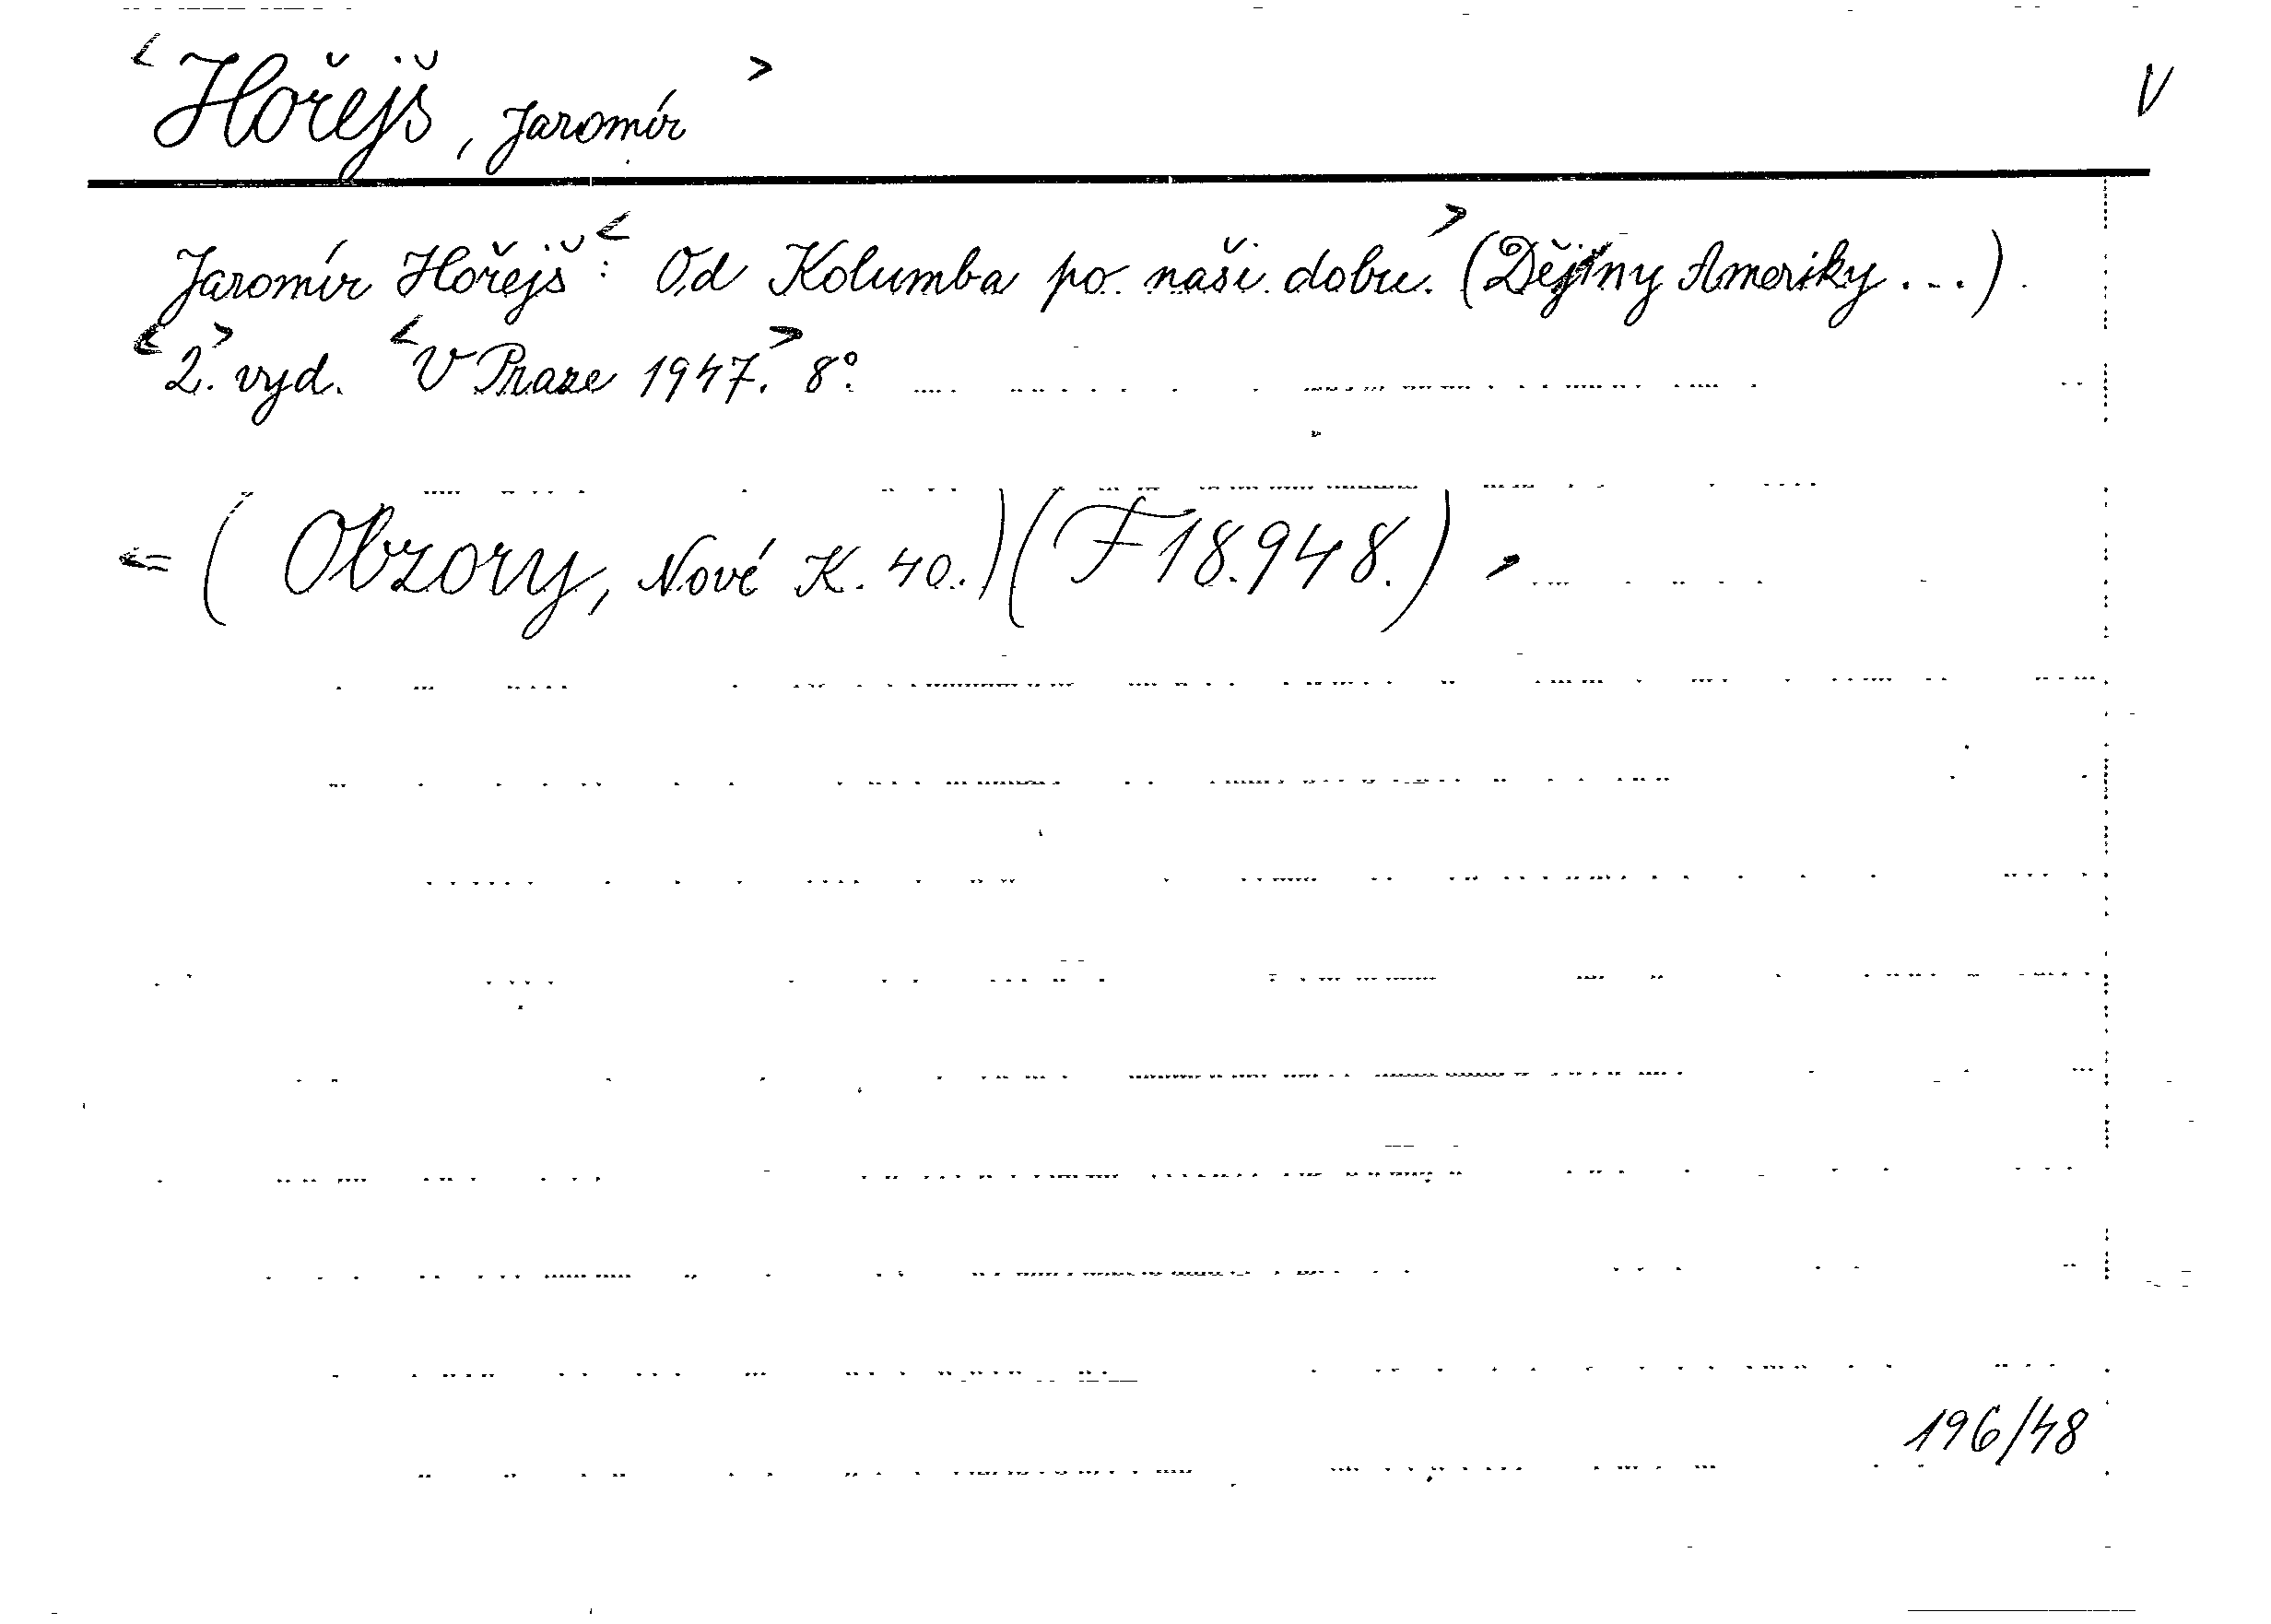 < Hořejš, Jaromír > V
Jaromír Hořejš: < Od Kolumba po naši dobu. > (Dějiny Ameriky ...).
< 2. > vyd. < V Praze 1947. > 8°.
<= (Obzory, Nové K. 40.) (F 18.948.) >
196/48